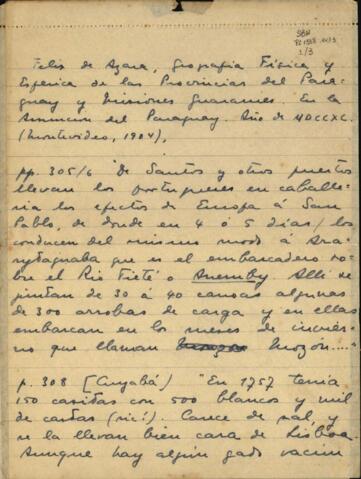 SBH
Pi 158
1/3
Felix de Azara, Geografia Física y
Esférica de las Provincias del Para-
guay y Misiones Guaraníes. En la
Asuncion del Paraguay. Año de MDCCXC.
(Montevideo, 1904),
pp. 305/6 "De Santos y otros puertos
llevan los portugueses en caballe-
ria los efectos de Europa á San
Pablo, de donde en 4 ó 5 dias los
conducen del mismo modo á Ara-
ritaguaba que es el embarcadero so-
bre el Rio Tieté ó Anemby. Alli se
juntan de 30 á 40 canoas algunas
de 300 arrobas de carga y en ellas
embarcan en los meses de invier-
no que llaman Mozón...."
p. 308 [Cuyabá) "En 1757 tenía
150 casitas con 500 blancos y mil
de castas (sic). Carece de sal, y
se la llevan bien cara de Lisboa.
Aunque hay algún gado vacún